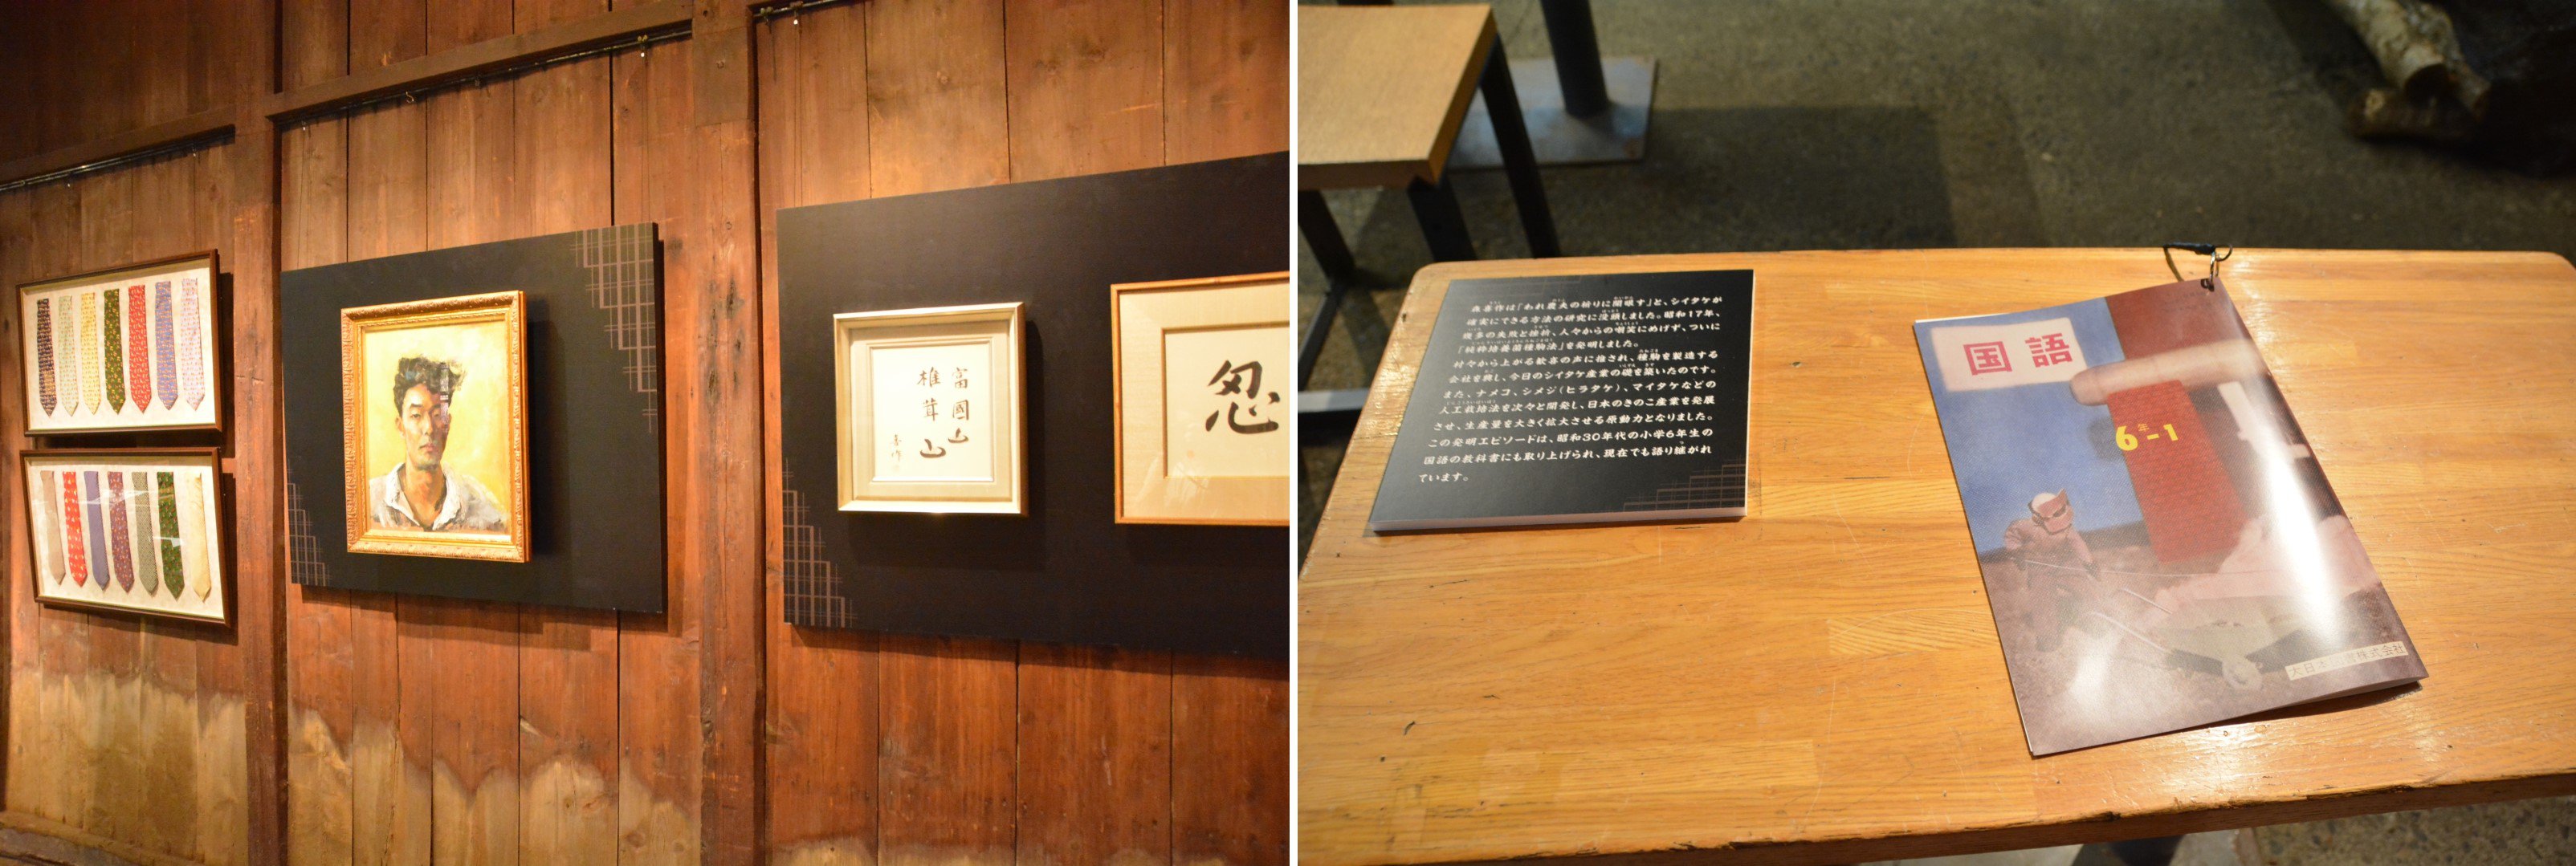 富國山
椎茸山
喜作
忍
森喜作は「われ農夫の祈りに開眼す」と、シイタケが
確実にできる方法の研究に没頭しました。昭和17年、
幾多の失敗と挫折、人々からの嘲笑にめげず、ついに
「純粋培養菌種駒法」を発明しました。
村々から上がる歓喜の声に推され、種駒を製造する
会社を興し、今日のシイタケ産業の礎を築いたのです。
また、ナメコ、シメジ(ヒラタケ)、マイタケなどの
人工栽培法を次々と開発し、日本のきのこ産業を発展
させ、生産量を大きく拡大させる原動力となりました。
この発明エピソードは、昭和30年代の小学6年生の
国語の教科書にも取り上げられ、現在でも語り継がれ
ています。
国語
6年-1
大日本 株式会社